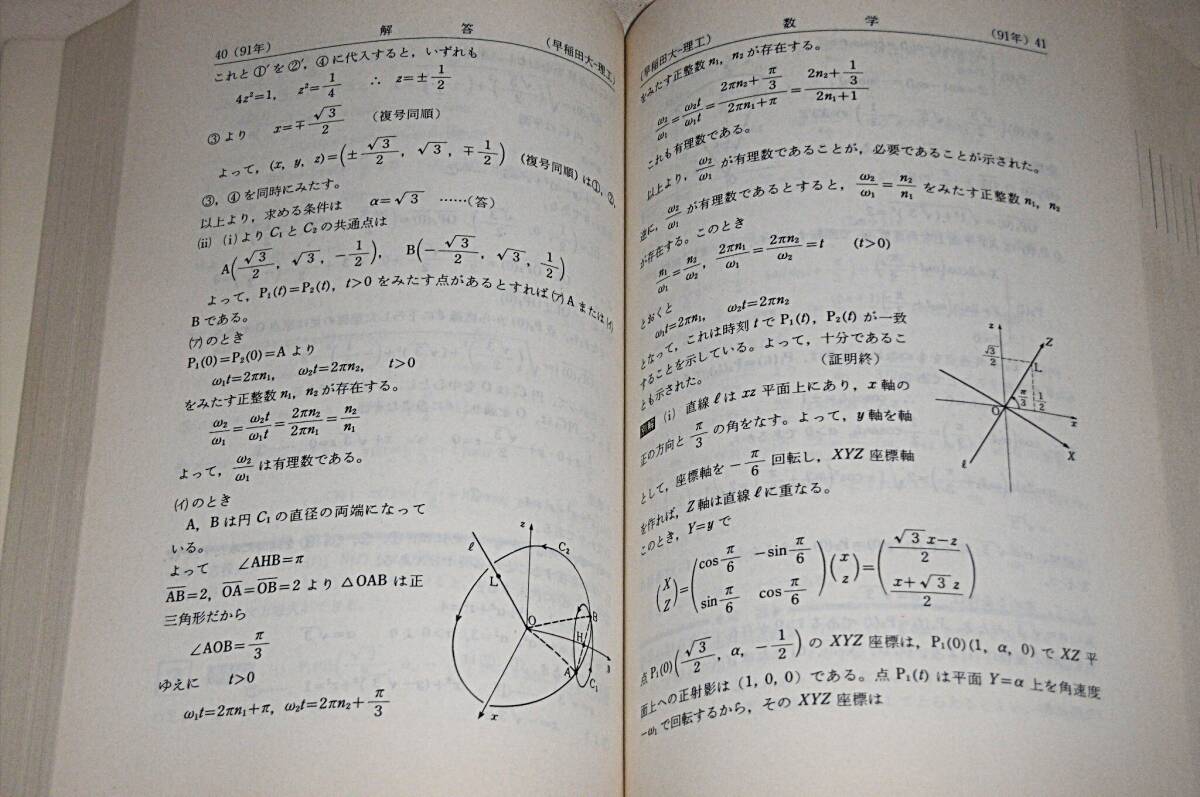 40 (91年) 解 答 (早稲田大-理工)
これと①′を②′, ④に代入すると, いずれも
4z²=1, z²=1/4 ∴ z=±1/2
③より x=∓√3/2 (複号同順)
よって, (x, y, z)=(±√3/2, √3, ∓1/2) (複号同順)は①, ②,
③, ④を同時にみたす。
以上より, 求める条件は α=√3 ……(答)
(ii) (i)よりC₁とC₂の共通点は
A(√3/2, √3, -1/2), B(-√3/2, √3, 1/2)
よって, P₁(t)=P₂(t), t>0 をみたす点があるとすれば(ア)Aまたは(イ)
Bである。
(ア)のとき
P₁(0)=P₂(0)=A より
ω₁t=2πn₁, ω₂t=2πn₂, t>0
をみたす正整数 n₁, n₂が存在する。
ω₂/ω₁=ω₂t/ω₁t=2πn₂/2πn₁=n₂/n₁
よって, ω₂/ω₁ は有理数である。
(イ)のとき
A, Bは円C₁の直径の両端になって
いる。
よって ∠AHB=π
AB=2, OA=OB=2 より △OABは正
三角形だから
∠AOB=π/3
ゆえに t>0
ω₁t=2πn₁+π, ω₂t=2πn₂+π/3
z
ℓ
C₂
L
O
B
H
A
C₁
x
数 学
(早稲田大-理工) (91年) 41
をみたす正整数 n₁, n₂ が存在する。
ω₂/ω₁=ω₂t/ω₁t=(2πn₂+π/3)/(2πn₁+π)=(2n₂+1/3)/(2n₁+1)
これも有理数である。
以上より, ω₂/ω₁ が有理数であることが, 必要であることが示された。
逆に, ω₂/ω₁ が有理数であるとすると, ω₂/ω₁=n₂/n₁ をみたす正整数 n₁, n₂
が存在する。このとき
n₁/ω₁=n₂/ω₂, 2πn₁/ω₁=2πn₂/ω₂=t (t>0)
とおくと
ω₁t=2πn₁, ω₂t=2πn₂
となって, これは時刻 t で P₁(t), P₂(t) が一致
することを示している。よって, 十分であるこ
とも示された。 (証明終)
(i) 直線ℓは xz 平面上にあり, x 軸の
正の方向と π/3 の角をなす。よって, y 軸を軸
として, 座標軸を -π/6 回転し, XYZ 座標軸
を作れば, Z軸は直線ℓに重なる。
このとき, Y=y で
z
Z
√3/2
L
π/3
1/2
O
x
X
ℓ
(X Z)=(cos π/6 -sin π/6 sin π/6 cos π/6)(x z)=((√3 x-z)/2 (x+√3 z)/2)
点 P₁(0)(√3/2, α, -1/2) の XYZ 座標は, P₁(0)(1, α, 0) で XZ 平
面上への正射影は (1, 0, 0) である。点 P₁(t) は平面 Y=α 上を角速度
-ω₁ で回転するから, その XYZ 座標は